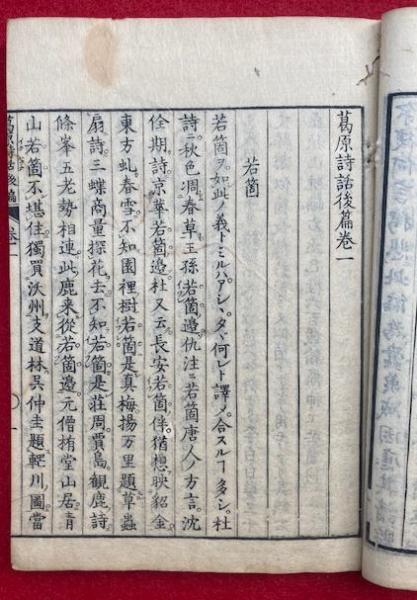 葛原詩話後篇巻一
若箇
若箇ヲ如此ノ義トミルハアシヽタヽ何レト譯メ合スルヿ多シ杜
詩ニ秋色凋春草王孫若箇邊仇注ニ若箇唐人ノ方言沈
佺期詩京華若箇邊杜又云長安若箇伴猶想映貂金
東方虬春雪不知園裡樹若箇是真梅楊万里題草蟲
扇詩三蝶商量探花去不知若箇是莊周賈島觀鹿詩
條峯五老勢相連此鹿来從若箇邊元僧栯堂山居青
山若箇不堪住獨買沃州支道林吳仲圭題輞川圖當
葛原詩話後篇
巻一